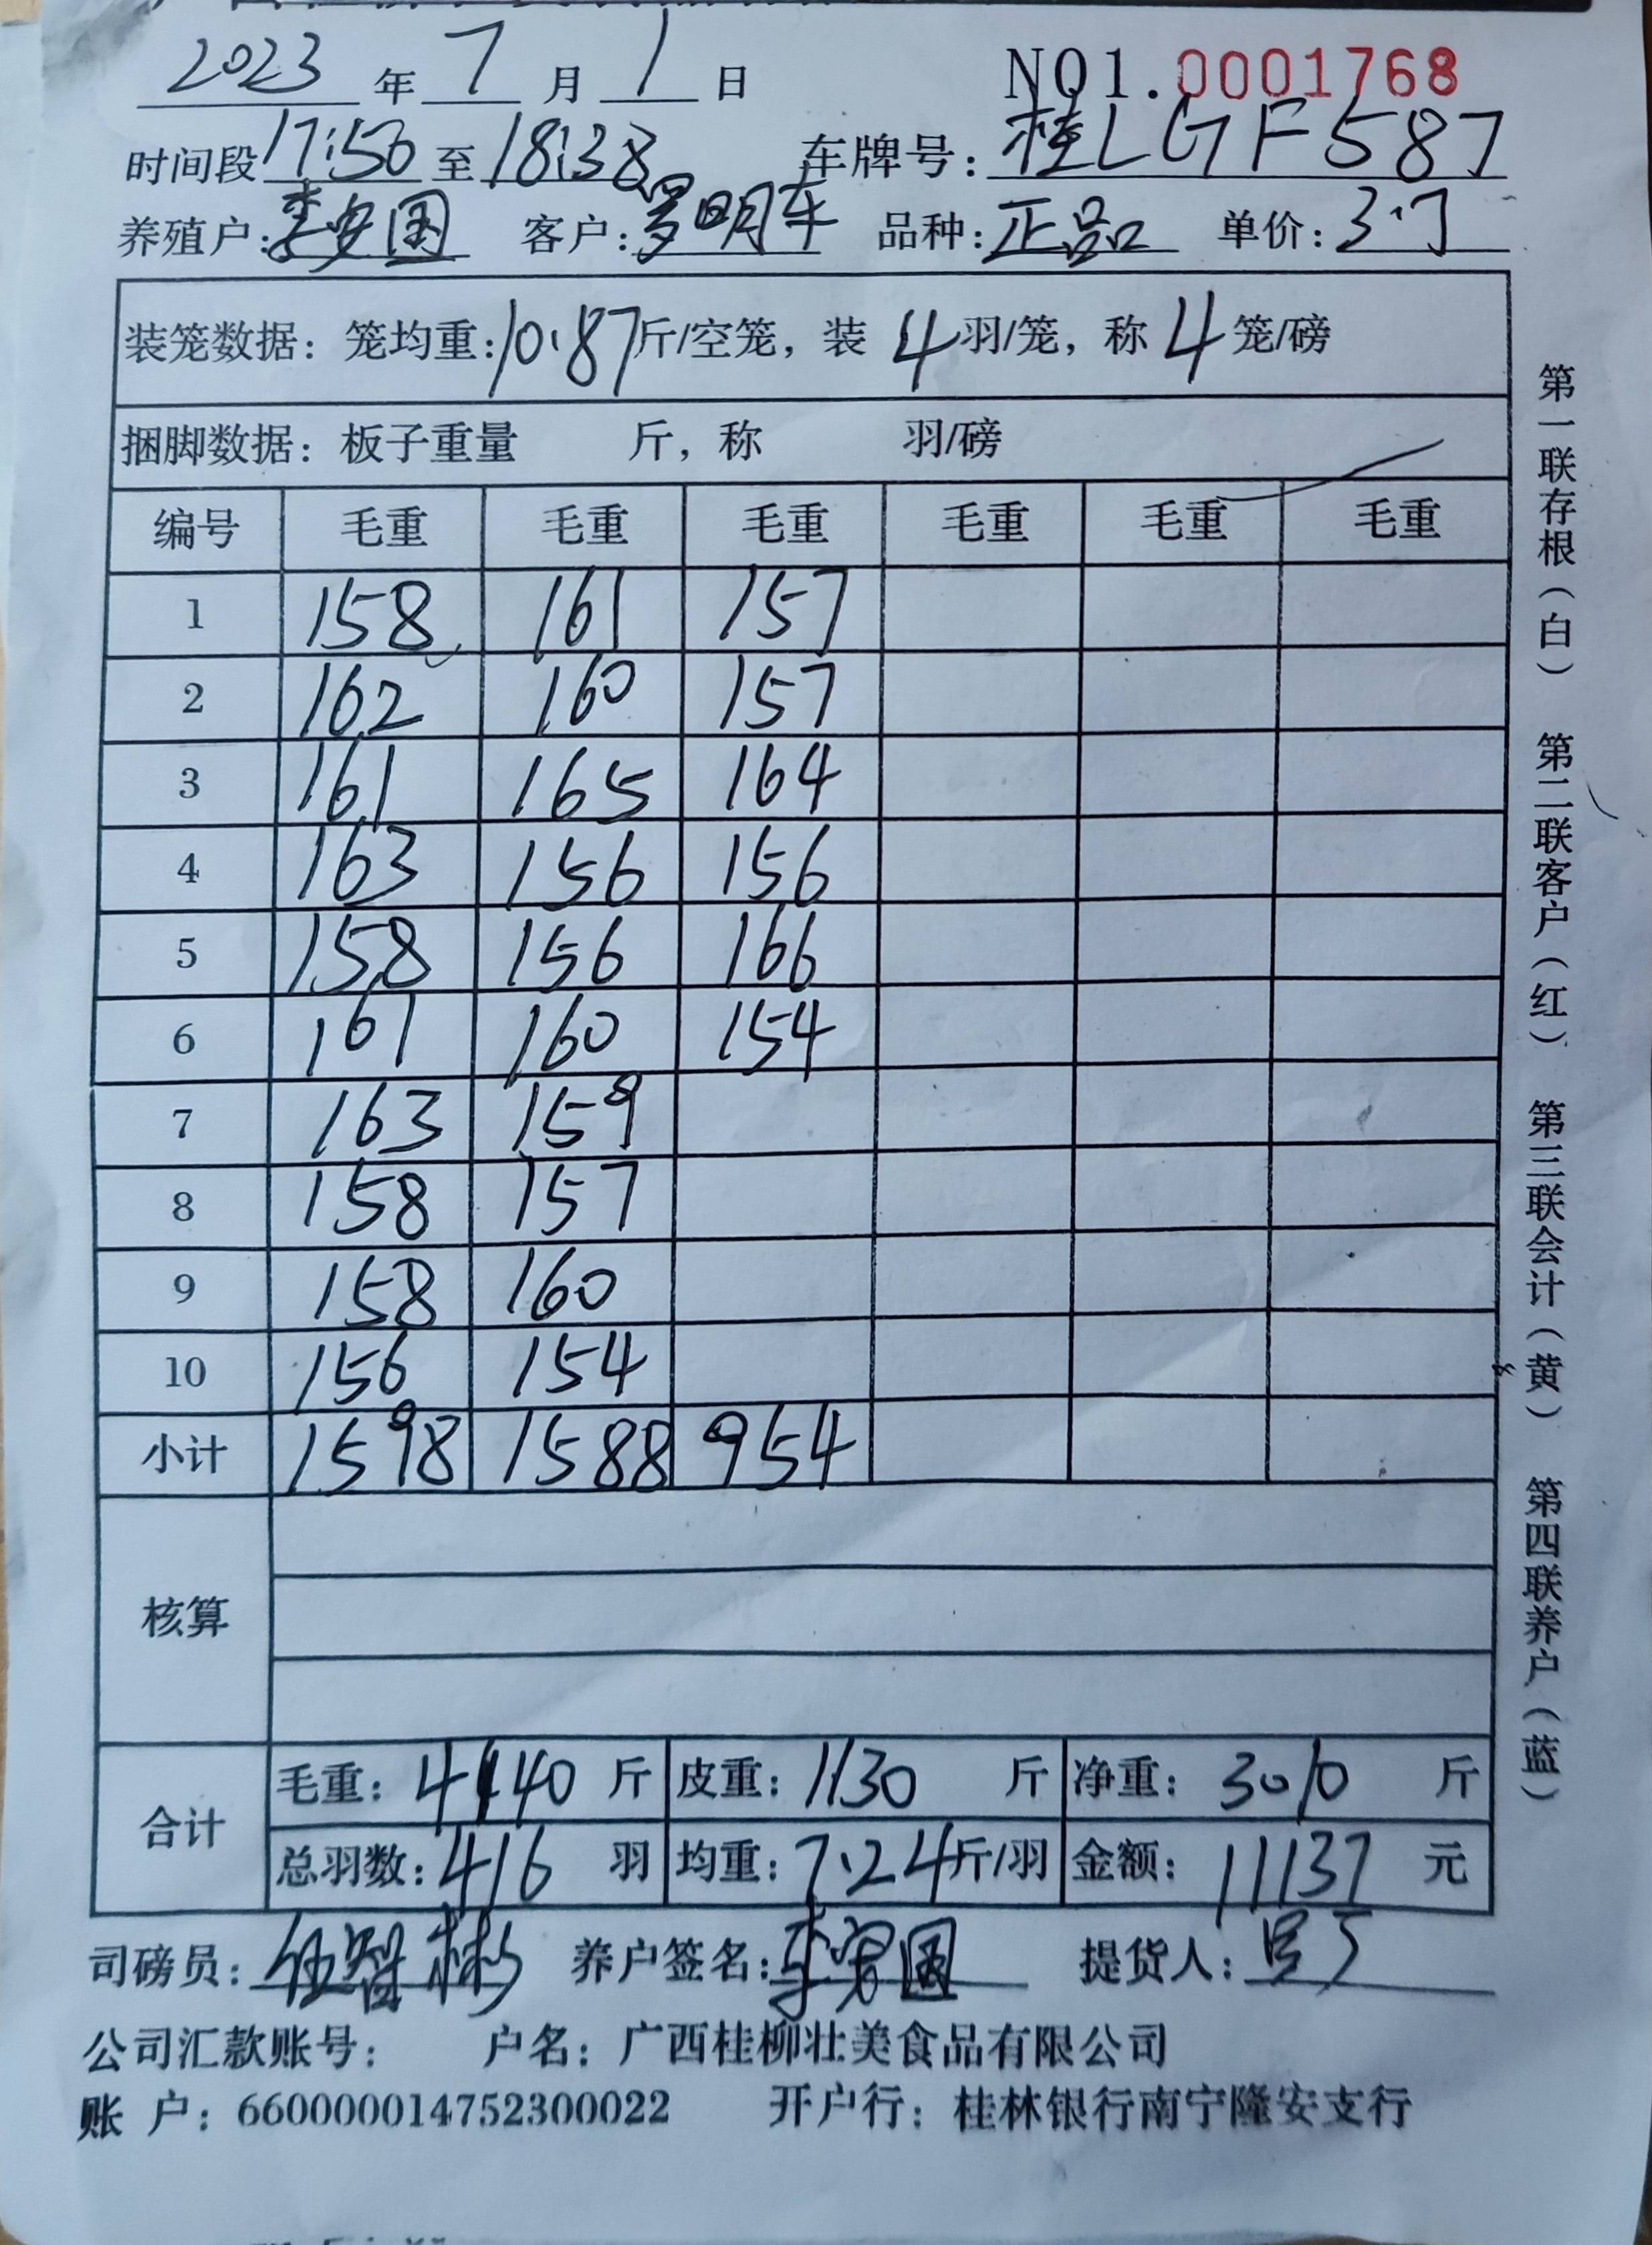 2023 年 7 月 1 日 NO1.0001768
时间段 17:56 至 18:38 车牌号: 桂LGF587
养殖户: 李安国 客户: 罗明车 品种: 正品 单价: 3.7
装笼数据: 笼均重: 10.87 斤/空笼, 装 4 羽/笼, 称 4 笼/磅
捆脚数据: 板子重量 斤, 称 羽/磅
编号 毛重 毛重 毛重 毛重 毛重 毛重
1 158 161 157
2 162 160 157
3 161 165 164
4 163 156 156
5 158 156 166
6 161 160 154
7 163 159
8 158 157
9 158 160
10 156 154
小计 1598 1588 954
核算
合计
毛重: 4140 斤 皮重: 1130 斤 净重: 3010 斤
总羽数: 416 羽 均重: 7.24 斤/羽 金额: 11137 元
司磅员: 养户签名: 李安国 提货人:
公司汇款账号: 户名: 广西桂柳壮美食品有限公司
账 户: 660000014752300022 开户行: 桂林银行南宁隆安支行
第一联存根(白) 第二联客户(红) 第三联会计(黄) 第四联养户(蓝)